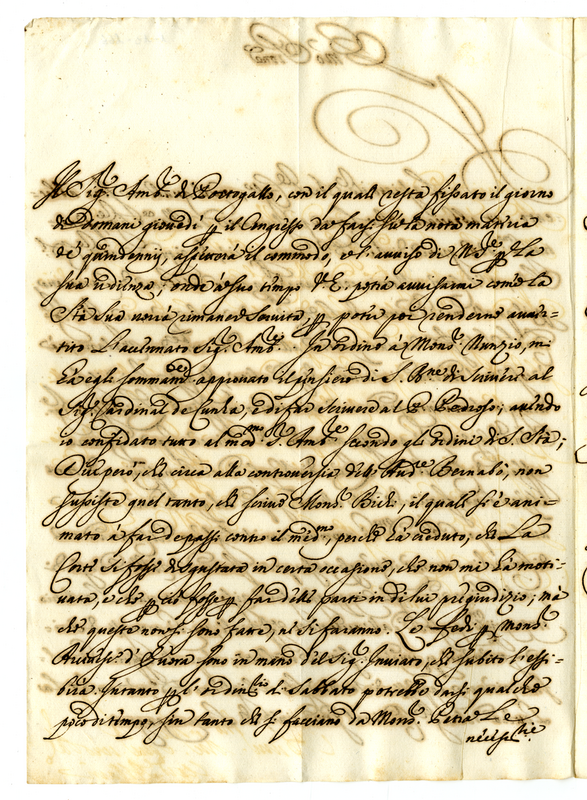 Il Sig.r Amb.r di Portogallo, con il quale resta fissato il giorno
di domani giovedì p il Congresso da farsi su la nota materia
de' quindennij, aspettarà il commodo, e l'avviso di N. Sre p La
sua udienza; onde à suo tempo V.E. potrà avvisarmi come la
Stà Sua vorrà rimanere servita, p poter poi renderne avver-
tito L'accennato Sig.r Amb.r. In ordine à Mons.r Nunzio, mi
hà egli sommam.te approvato il pensiero di S. B.ne di scrivere al
Sig.r Cardinal de Cunha, e di far scrivere al P. Pedroso; avendo
io confidato tutto al med.mo S. Amb.re secondo gli ordini di S. Stà;
Dice però, che circa alla controversia dell' Aud.re Bernabò, non
sussiste quel tanto, che scrive Mons.r Bichi, il quale si è ani-
mato à far de passi contro il med.mo, perche hà creduto, che La
Corte si fosse disgustata in certa occasione, che non mi hà moti-
vata, e che p ciò fosse p far delle parti in di lui pregiudizio; mà
che queste non si sono fatte, ne si faranno. Le fedi p Mons.r
d'Evora sono in mano del Sig.r Inviato, che subito l'essi-
birà. Intanto p l' di Sabbato potrebbe darsi qualche
poco di tempo, sin tanto che si facciano da Mons.r Le